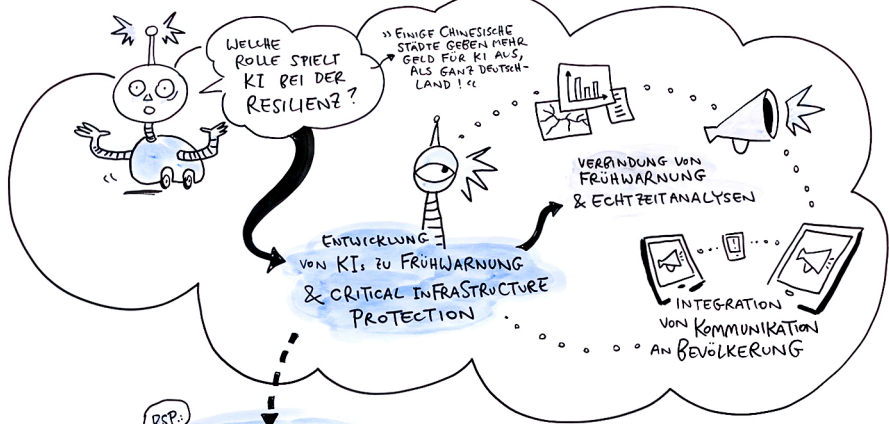 WELCHE
ROLLE SPIELT
KI BEI DER
RESILIENZ?
»EINIGE CHINESISCHE
STÄDTE GEBEN MEHR
GELD FÜR KI AUS,
ALS GANZ DEUTSCH-
LAND!«
ENTWICKLUNG
VON KIs ZU FRÜHWARNUNG
& CRITICAL INFRASTRUCTURE
PROTECTION
VERBINDUNG VON
FRÜHWARNUNG
& ECHTZEITANALYSEN
INTEGRATION
VON KOMMUNIKATION
AN BEVÖLKERUNG
BSP.: